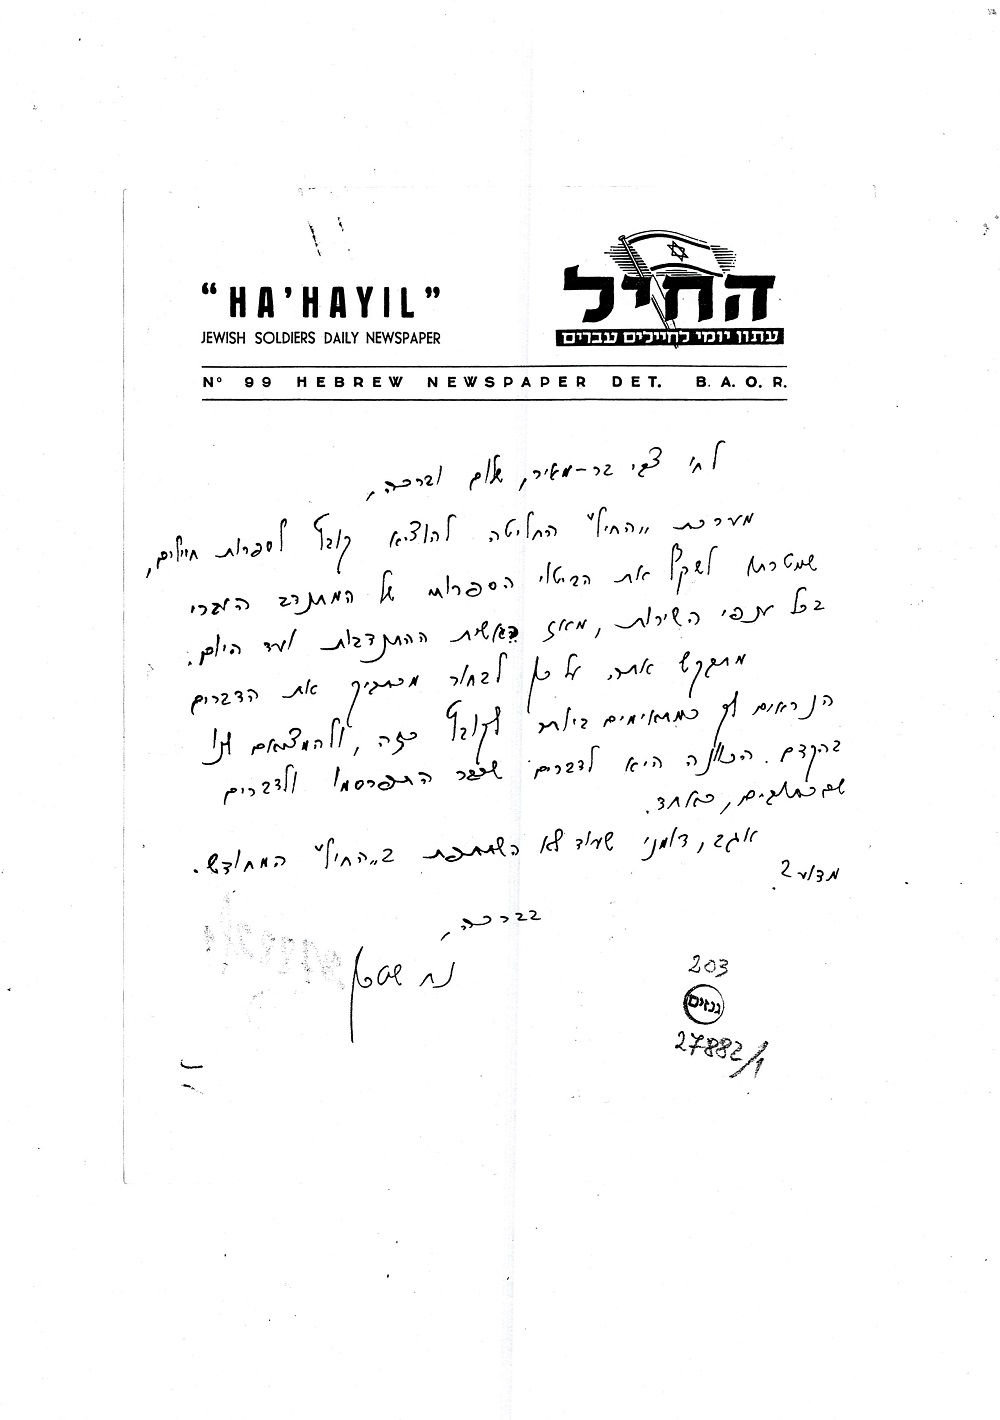 "HA'HAYIL"
JEWISH SOLDIERS DAILY NEWSPAPER
החיל
עתון יומי לחיילים עברים
Nº 99 HEBREW NEWSPAPER DET. B. A. O. R.
לח' צבי בר-מאיר, שלום וברכה,
מערכת „החיל" החליטה להוציא קובץ לספרות חיילים,
שמטרתו לשקף את הביטוי הספרותי של המתנדב העברי
בכל ענפי השירות, מאז ראשית ההתנדבות ועד היום.
מתבקש אתה, על כן לבחור מכתביך את הדברים
הנראים לך כמתאימים ביותר לקובץ כזה, ולהמציאם לנו
בהקדם. הכוונה היא לדברים שכבר התפרסמו ולדברים
שבכתובים, כאחד.
אגב, דומני שעוד לא השתתפת ב„החיל" המחודש.
מדוע?
בברכה,
203
גנזים
27882/1